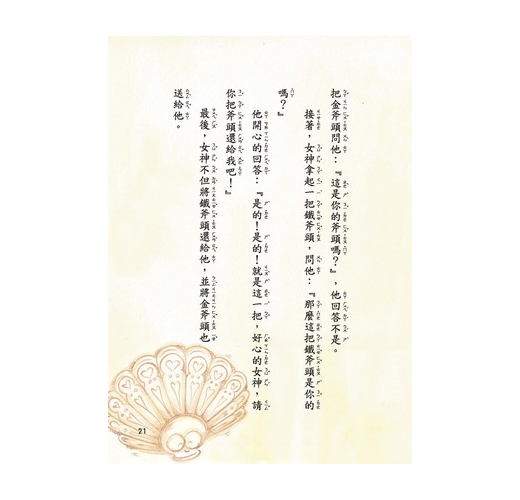 把金斧頭問他：『這是你的斧頭嗎？』，他回答不是。
接著，女神拿起一把鐵斧頭，問他：『那麼這把鐵斧頭是你的
嗎？』
他開心的回答：『是的！是的！就是這一把，好心的女神，請
你把斧頭還給我吧！』
最後，女神不但將鐵斧頭還給他，並將金斧頭也
送給他。
21